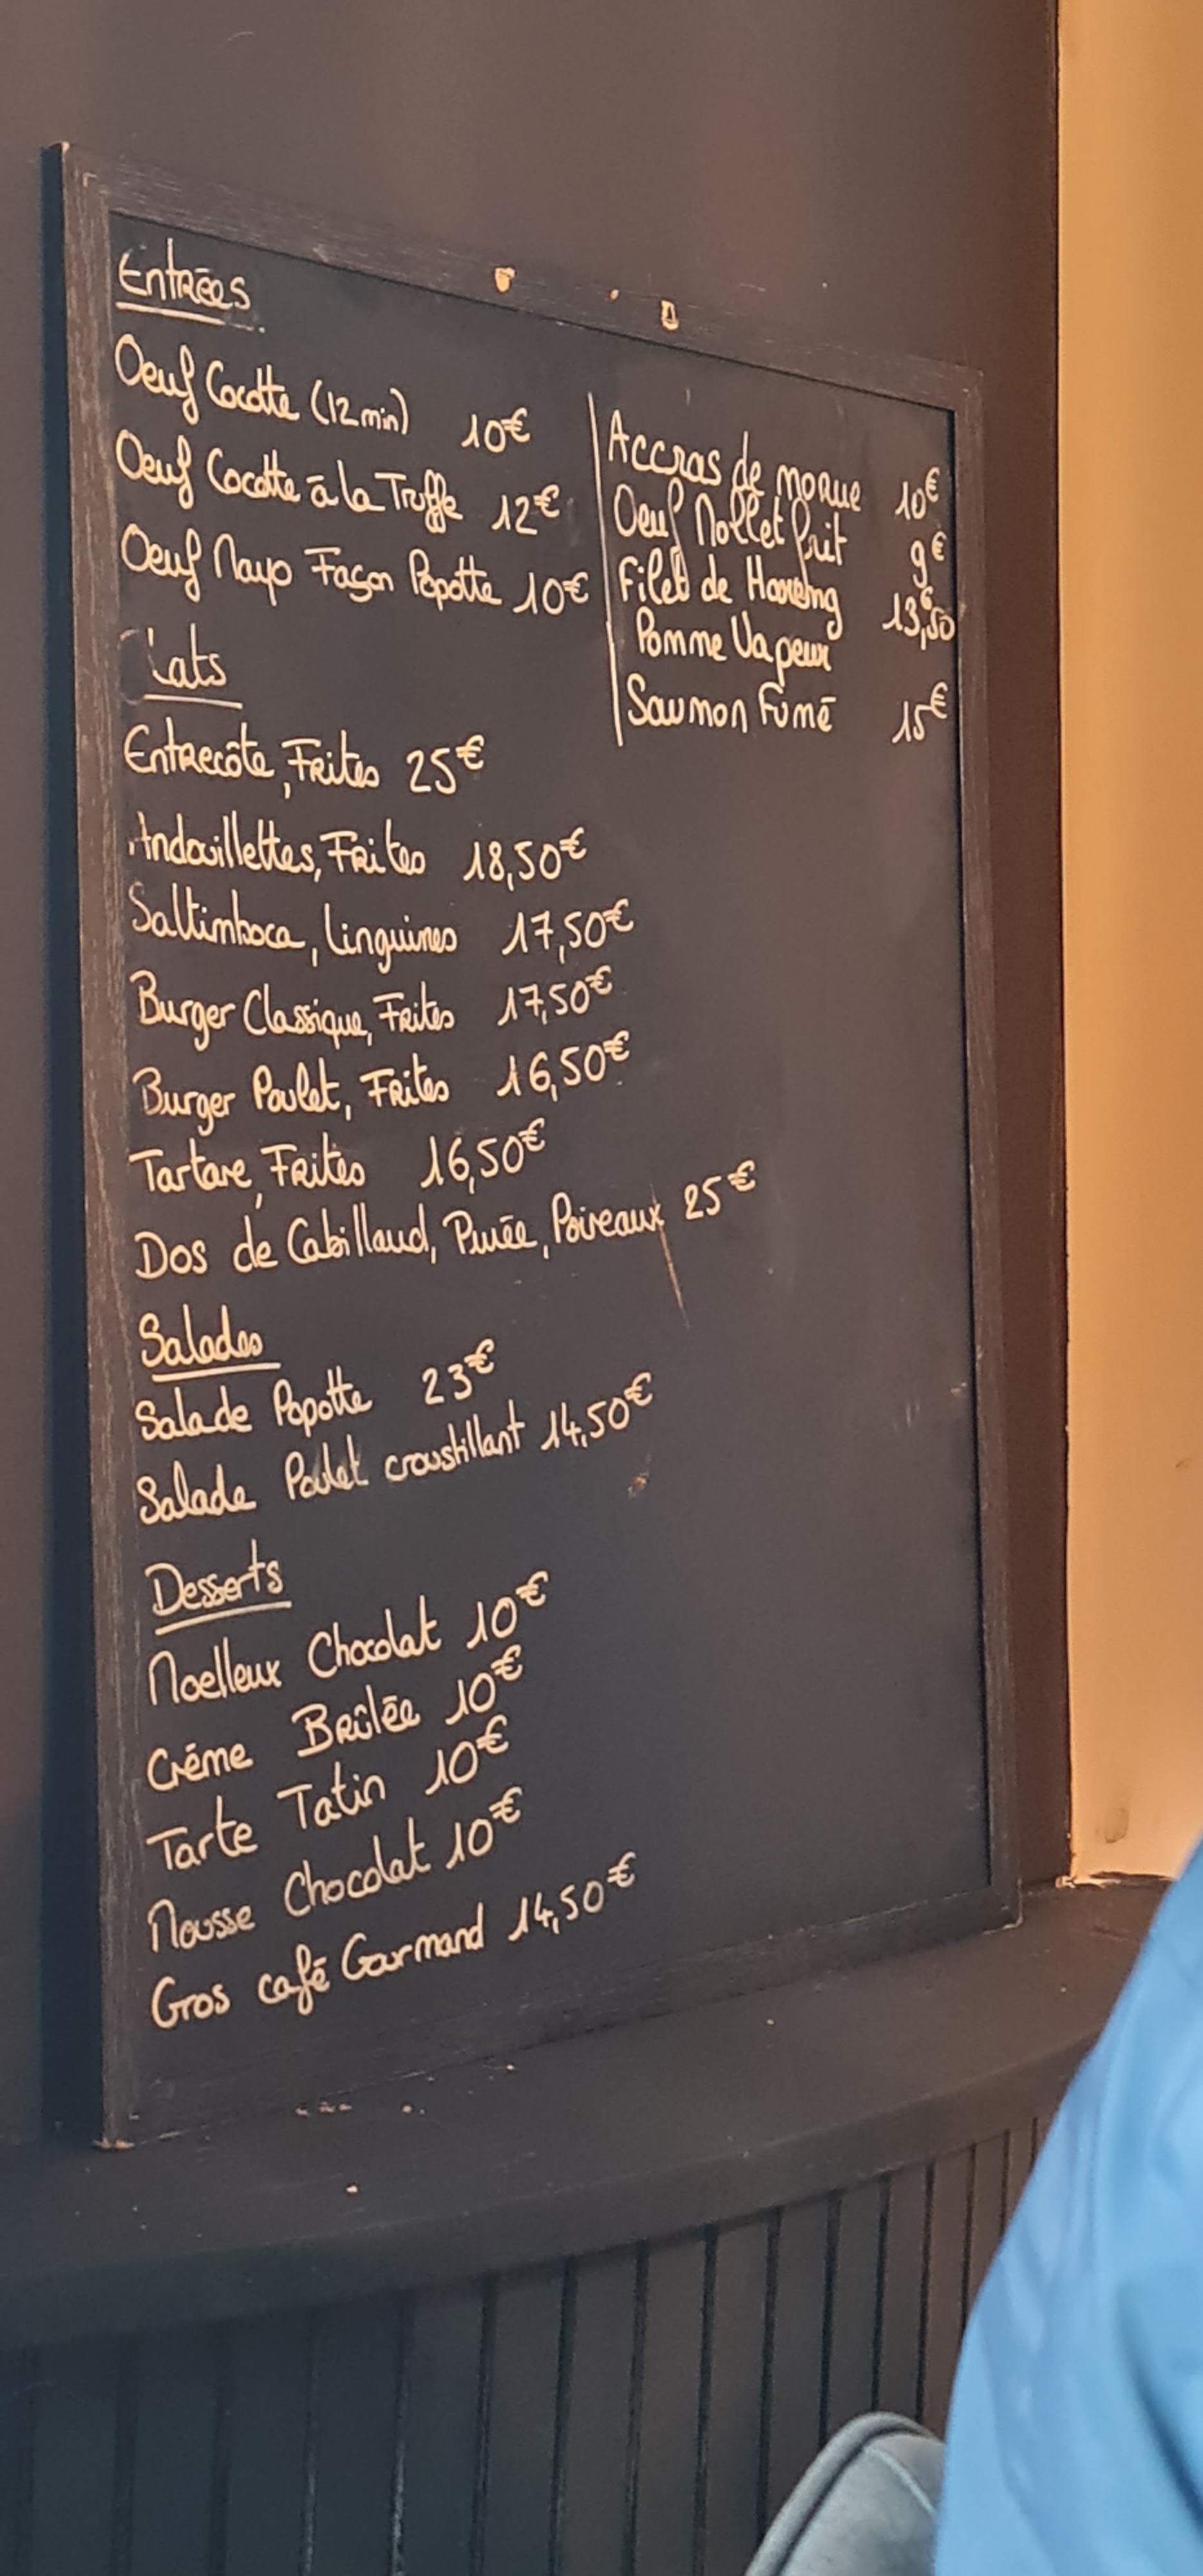 Entrées
Oeuf Cocotte (12min) 10€
Oeuf Cocotte à la Truffe 12€
Oeuf Mayo Façon Popotte 10€
Accras de morue 10€
Oeuf Mollet frit 9€
Filet de Hareng 13,50€
Pomme Vapeur
Saumon Fumé 15€
lats
Entrecôte, Frites 25€
Andouillettes, Frites 18,50€
Saltimboca, Linguines 17,50€
Burger Classique, Frites 17,50€
Burger Poulet, Frites 16,50€
Tartare, Frites 16,50€
Dos de Cabillaud, Purée, Poireaux 25€
Salades
Salade Popotte 23€
Salade Poulet croustillant 14,50€
Desserts
Moelleux Chocolat 10€
Créme Brûlée 10€
Tarte Tatin 10€
Mousse Chocolat 10€
Gros café Gourmand 14,50€